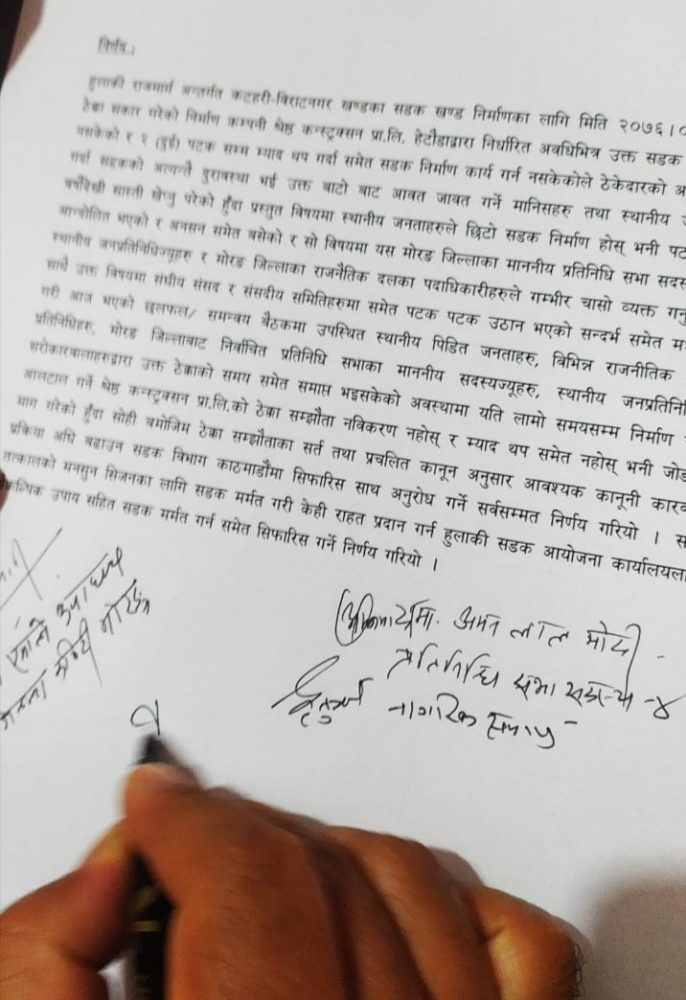 निर्णय :
हुलाकी राजमार्ग अन्तर्गत कटहरी-बिराटनगर खण्डका सडक खण्ड निर्माणका लागि मिति २०७६।०
ठेक्का सकार गरेको निर्माण कम्पनी श्रेष्ठ कन्स्ट्रक्सन प्रा.लि. हेटौडाद्वारा निर्धारित अवधिभित्र उक्त सडक
नसकेको र २ (दुई) पटक सम्म म्याद थप गर्दा समेत सडक निर्माण कार्य गर्न नसकेकोले ठेकेदारको अ
गर्दा सडकको अत्यन्तै दुरावस्था भई उक्त बाटो बाट आवत जावत गर्ने मानिसहरु तथा स्थानीय
वर्षौदेखी सास्ती खेप्नु परेको हुँवा प्रस्तुत विषयमा स्थानीय जनताहरुले छिटो सडक निर्माण होस् भनी पट
आन्दोलित भएको र अनसन समेत बसेको र सो विषयमा यस मोरङ जिल्लाका माननीय प्रतिनिधि सभा सदस
स्थानीय जनप्रतिनिधिज्यूहरु र मोरङ जिल्लाका राजनैतिक दलका पदाधिकारीहरुले गम्भीर चासो व्यक्त गनु
साथै उक्त विषयमा संघीय संसद र संसदीय समितिहरुमा समेत पटक पटक उठान भएको सन्दर्भ समेत म
गरी आज भएको छलफल/ समन्वय बैठकमा उपस्थित स्थानीय पिडित जनताहरु, विभिन्न राजनीतिक
प्रतिनिधिहरु, मोरङ जिल्लाबाट निर्वाचित प्रतिनिधि सभाका माननीय सदस्यज्यूहरु, स्थानीय जनप्रतिनि
सरोकारवालाहरुद्वारा उक्त ठेक्काको समय समेत समाप्त भइसकेको अवस्थामा यति लामो समयसम्म निर्माण
आलटाल गर्ने श्रेष्ठ कन्स्ट्रक्सन प्रा.लि.को ठेक्का सम्झौता नविकरण नहोस् र म्याद थप समेत नहोस् भनी जोड
माग गरेको हुँवा सोही बमोजिम ठेक्का सम्झौताका सर्त तथा प्रचलित कानून अनुसार आवश्यक कानूनी कारव
प्रक्रिया अघि बढाउन सडक विभाग काठमाडौमा सिफारिस साथ अनुरोध गर्ने सर्वसम्मत निर्णय गरियो । स
तत्कालको मनसुन सिजनका लागि सडक मर्मत गरी केही राहत प्रदान गर्न हुलाकी सडक आयोजना कार्यालयल
कल्पिक उपाय सहित सडक मर्मत गर्न समेत सिफारिस गर्ने निर्णय गरियो ।
मा. अमन लाल मोदी
प्रतिनिधि सभा सदस्य - ४
नागरिक समाज